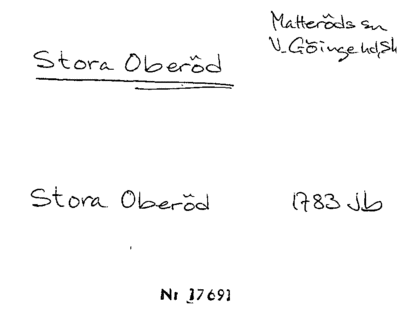 Matteröds sn
V. Göinge hd, Sk
Stora Oberöd
Stora Oberöd 1783 Jb
Nr 17691